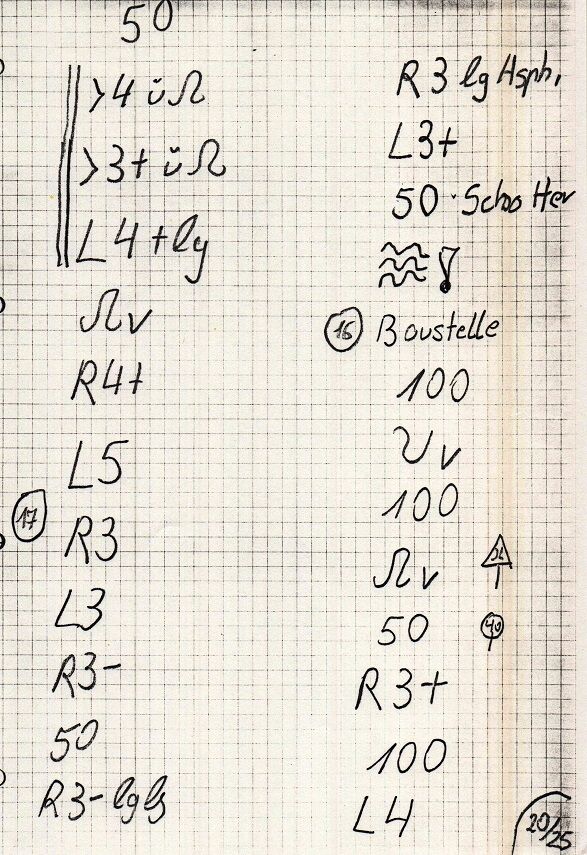 50
>4 ü Ω
>3+ ü Ω
L4+lg
Ω v
R4+
L5
17
R3
L3
R3-
50
R3- lglg
R3 lg Asph.
L3+
50 · Schotter
!
16 Baustelle
100
v
100
Ω v
50 40
R3+
100
L4
20/25